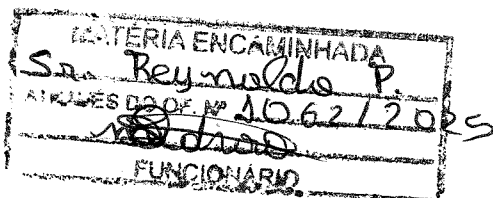 MATÉRIA ENCAMINHADA
Sr. Reynaldo P.
ATRAVÉS DO OF. Nº 1062/2025
FUNCIONÁRIO